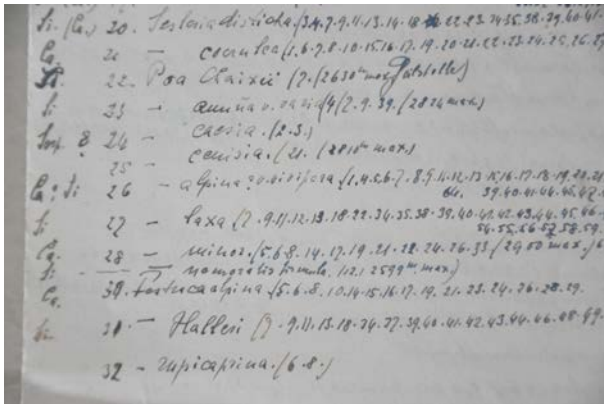 Si. (Ca.) 20. Sesleria disticha. (3.4.7.9.11.13.14.18 22.23.24.35.38.39.40.41.
Ca. 21 — coerulea (1.6.7.8.10.15.16.17.19.20.21.22.23.24.25.26.27
Si. 22. Poa Chaixii (7. (2630 m max
Si 23 — annua v. varia (4 (7.9.39. (2874 max)
24 — caesia. (2.3.)
25 — cenisia. (21. (2810 m max.)
Ca. Si 26 — alpina v. vivipara (1.4.5.6.7.8.9.11.12.13.15.16.17.18.19.20.21
39.40.41.44.45.47.
Si 27 — laxa (7.9.11.12.13.18.22.34.35.38.39.40.41.42.43.44.45.46.
54.55.56.57.58.59.
Ca. 28 — minor. (5.6.8.14.17.19.21.22.24.26.33 (2900 max.)
Si — nemoralis (12. (2599 m. max)
Ca. 30. Festuca alpina (5.6.8.10.14.15.16.17.19.21.23.24.26.28.29.
Si 31 — Halleri (7.9.11.13.18.34.37.39.40.41.42.43.44.46.48.49.
32 — rupicaprina. (6.8.)